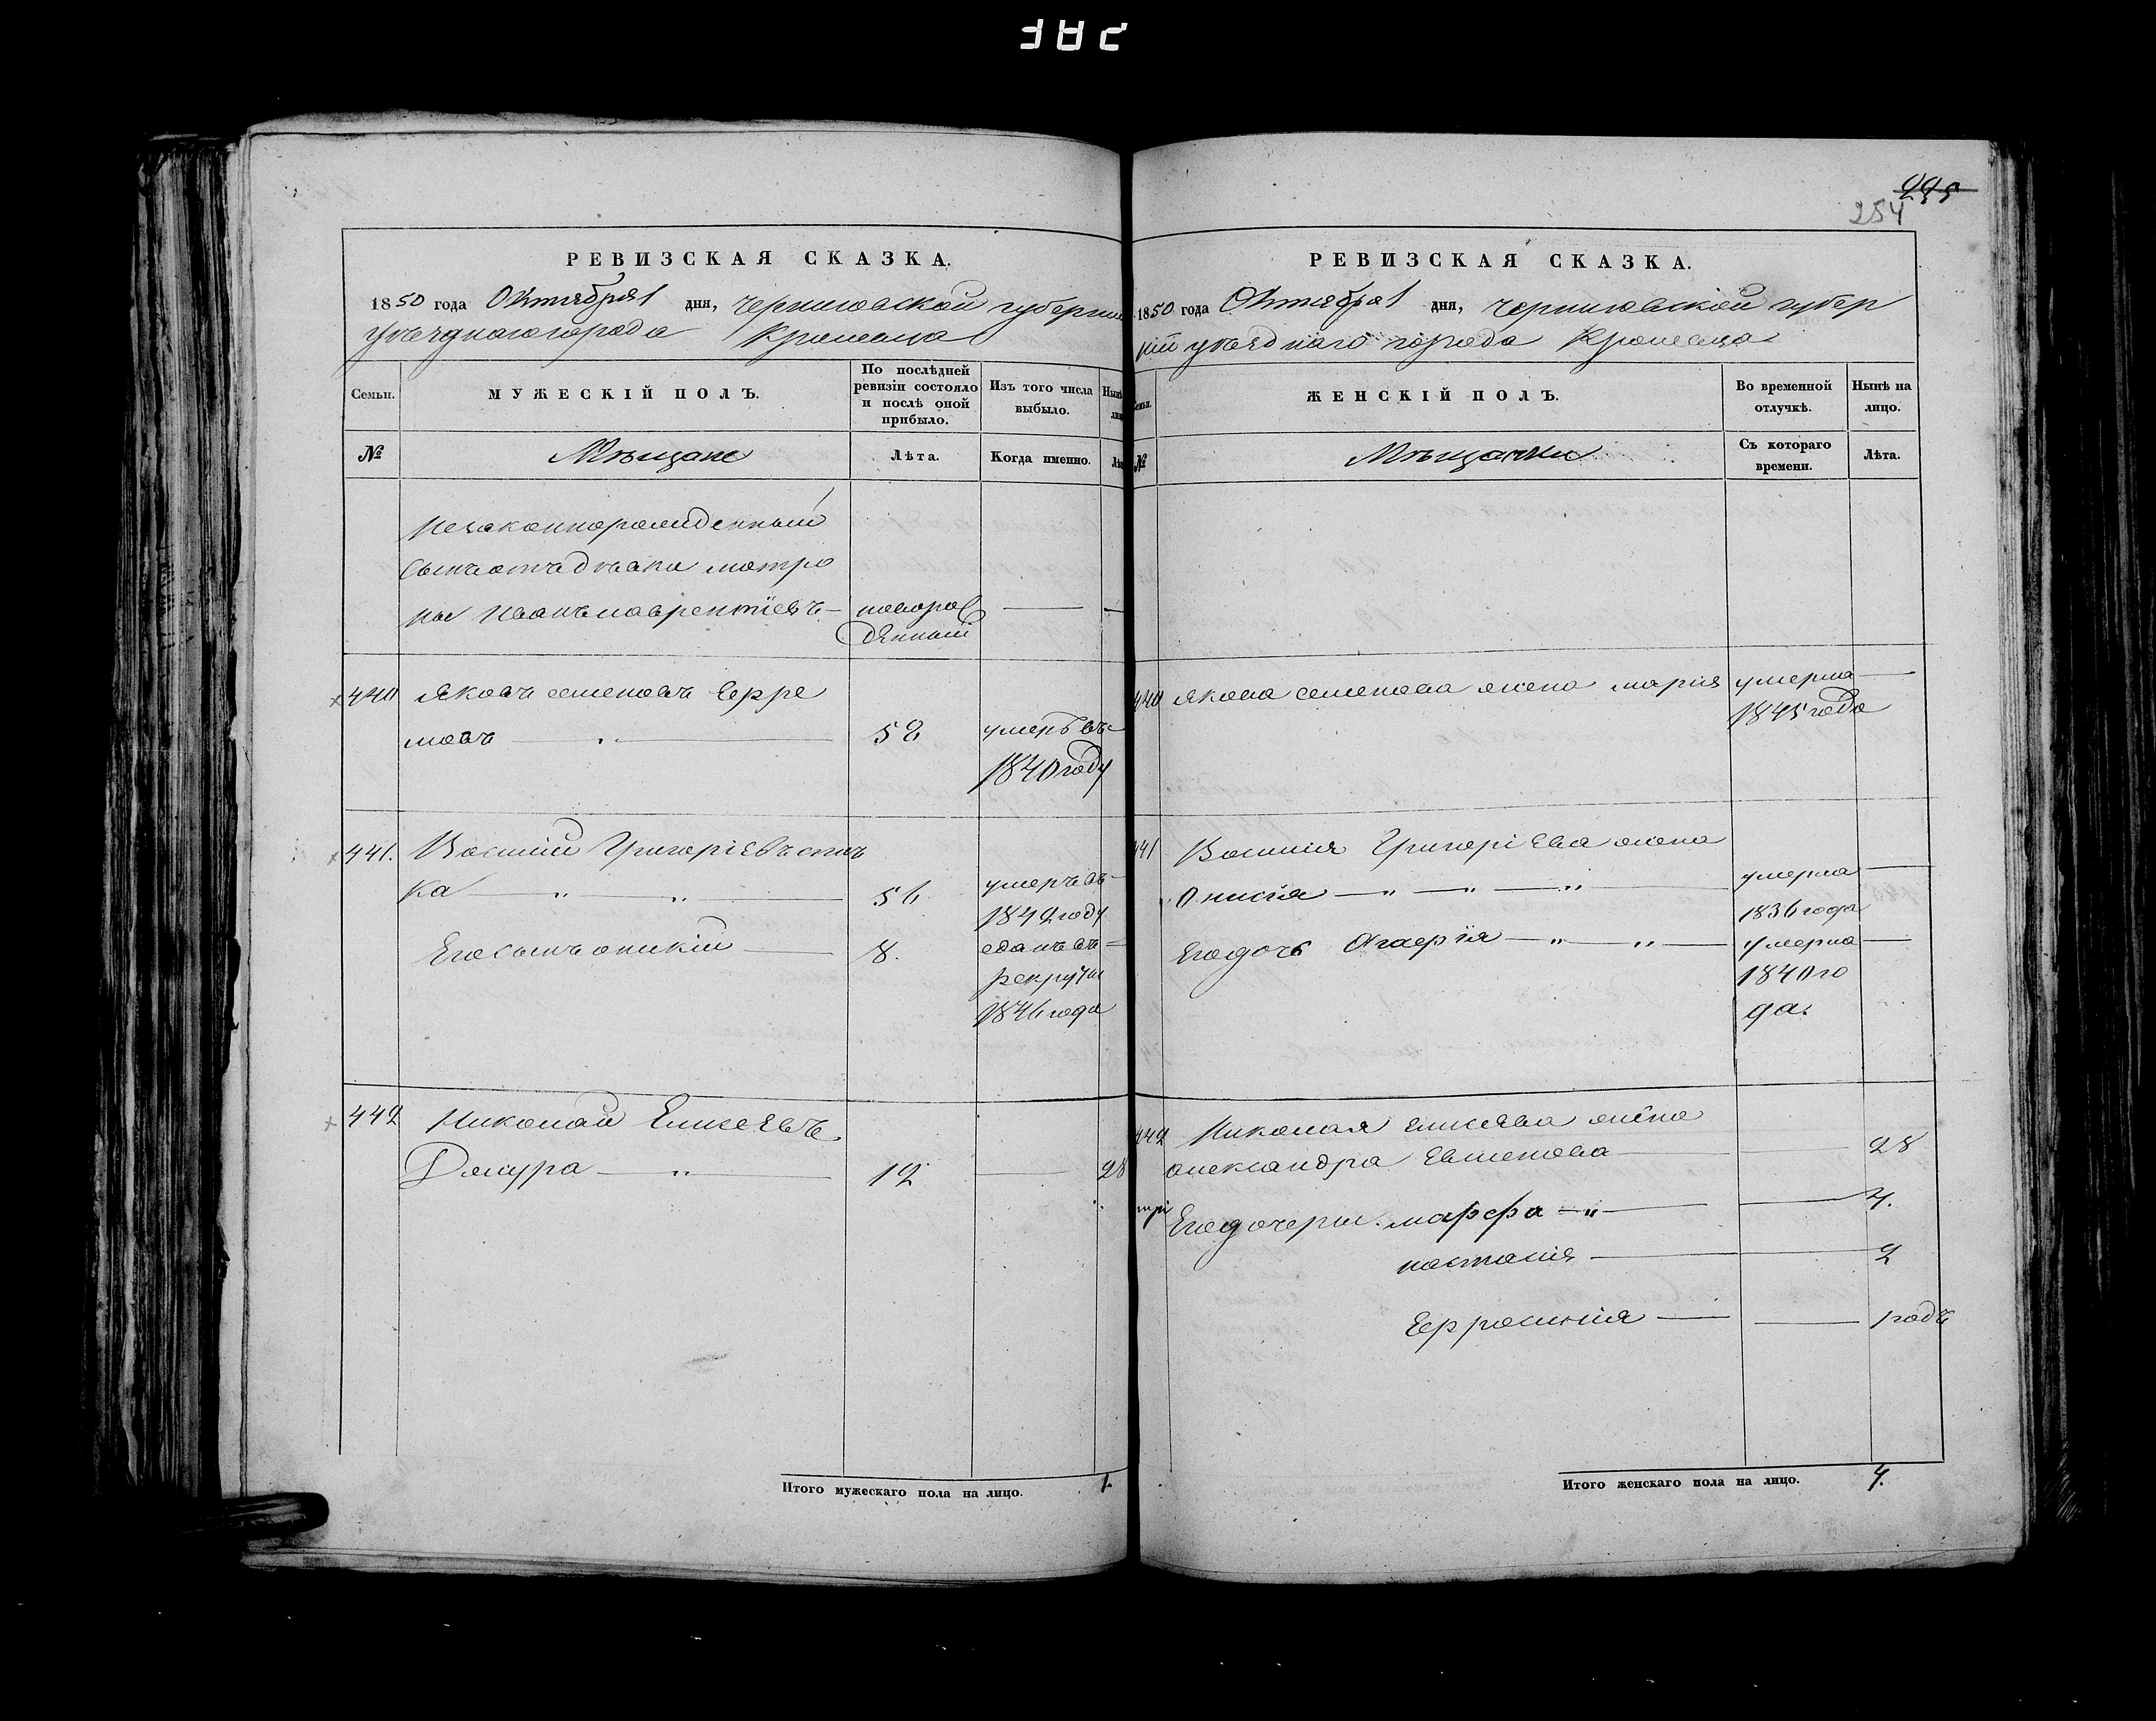 382
РЕВИЗСКАЯ СКАЗКА.
1850 года Октября 1 дня, Черниговской губерніи
уѣзднаго города Кролевца
Семьи.
МУЖЕСКІЙ ПОЛЪ.
По послѣдней ревизіи состояло и послѣ оной прибыло.
Изъ того числа выбыло.
№
Мѣщане
Лѣта.
Когда именно.
незаконнорожденный
сынъ отъ дѣвки матро
ны Иванъ лаврентіевъ — новорож
денный
440 Яковъ семеновъ Ефре
мовъ 52 умеръ въ
1840 году
441. Василій Григоріевъ
ка 56 умеръ въ
1842 году
Его сынъ оникій 8. сданъ въ
рекруты
1846 года
442 Николай Елисѣевъ
Джура 12 28
Итого мужескаго пола на лицо. 1.
445
254
РЕВИЗСКАЯ СКАЗКА.
1850 года Октября 1 дня, Черниговской губер
ніи уѣзднаго города Кролевца
ЖЕНСКІЙ ПОЛЪ.
Во временной отлучкѣ.
Нынѣ на лицо.
№
Мѣщанки
Съ котораго времени.
Лѣта.
440 Якова семенова жена марія умерла
1845 года
441 Василія Григоріева жена
Онисія умерла
1836 года
Его дочь Агафія умерла
1840 го
да.
442 Николая елисѣева жена
александра Евменова 28
Его дочери марфа 4.
настасія 2
Ефросинія 1 годъ
Итого женскаго пола на лицо. 4.